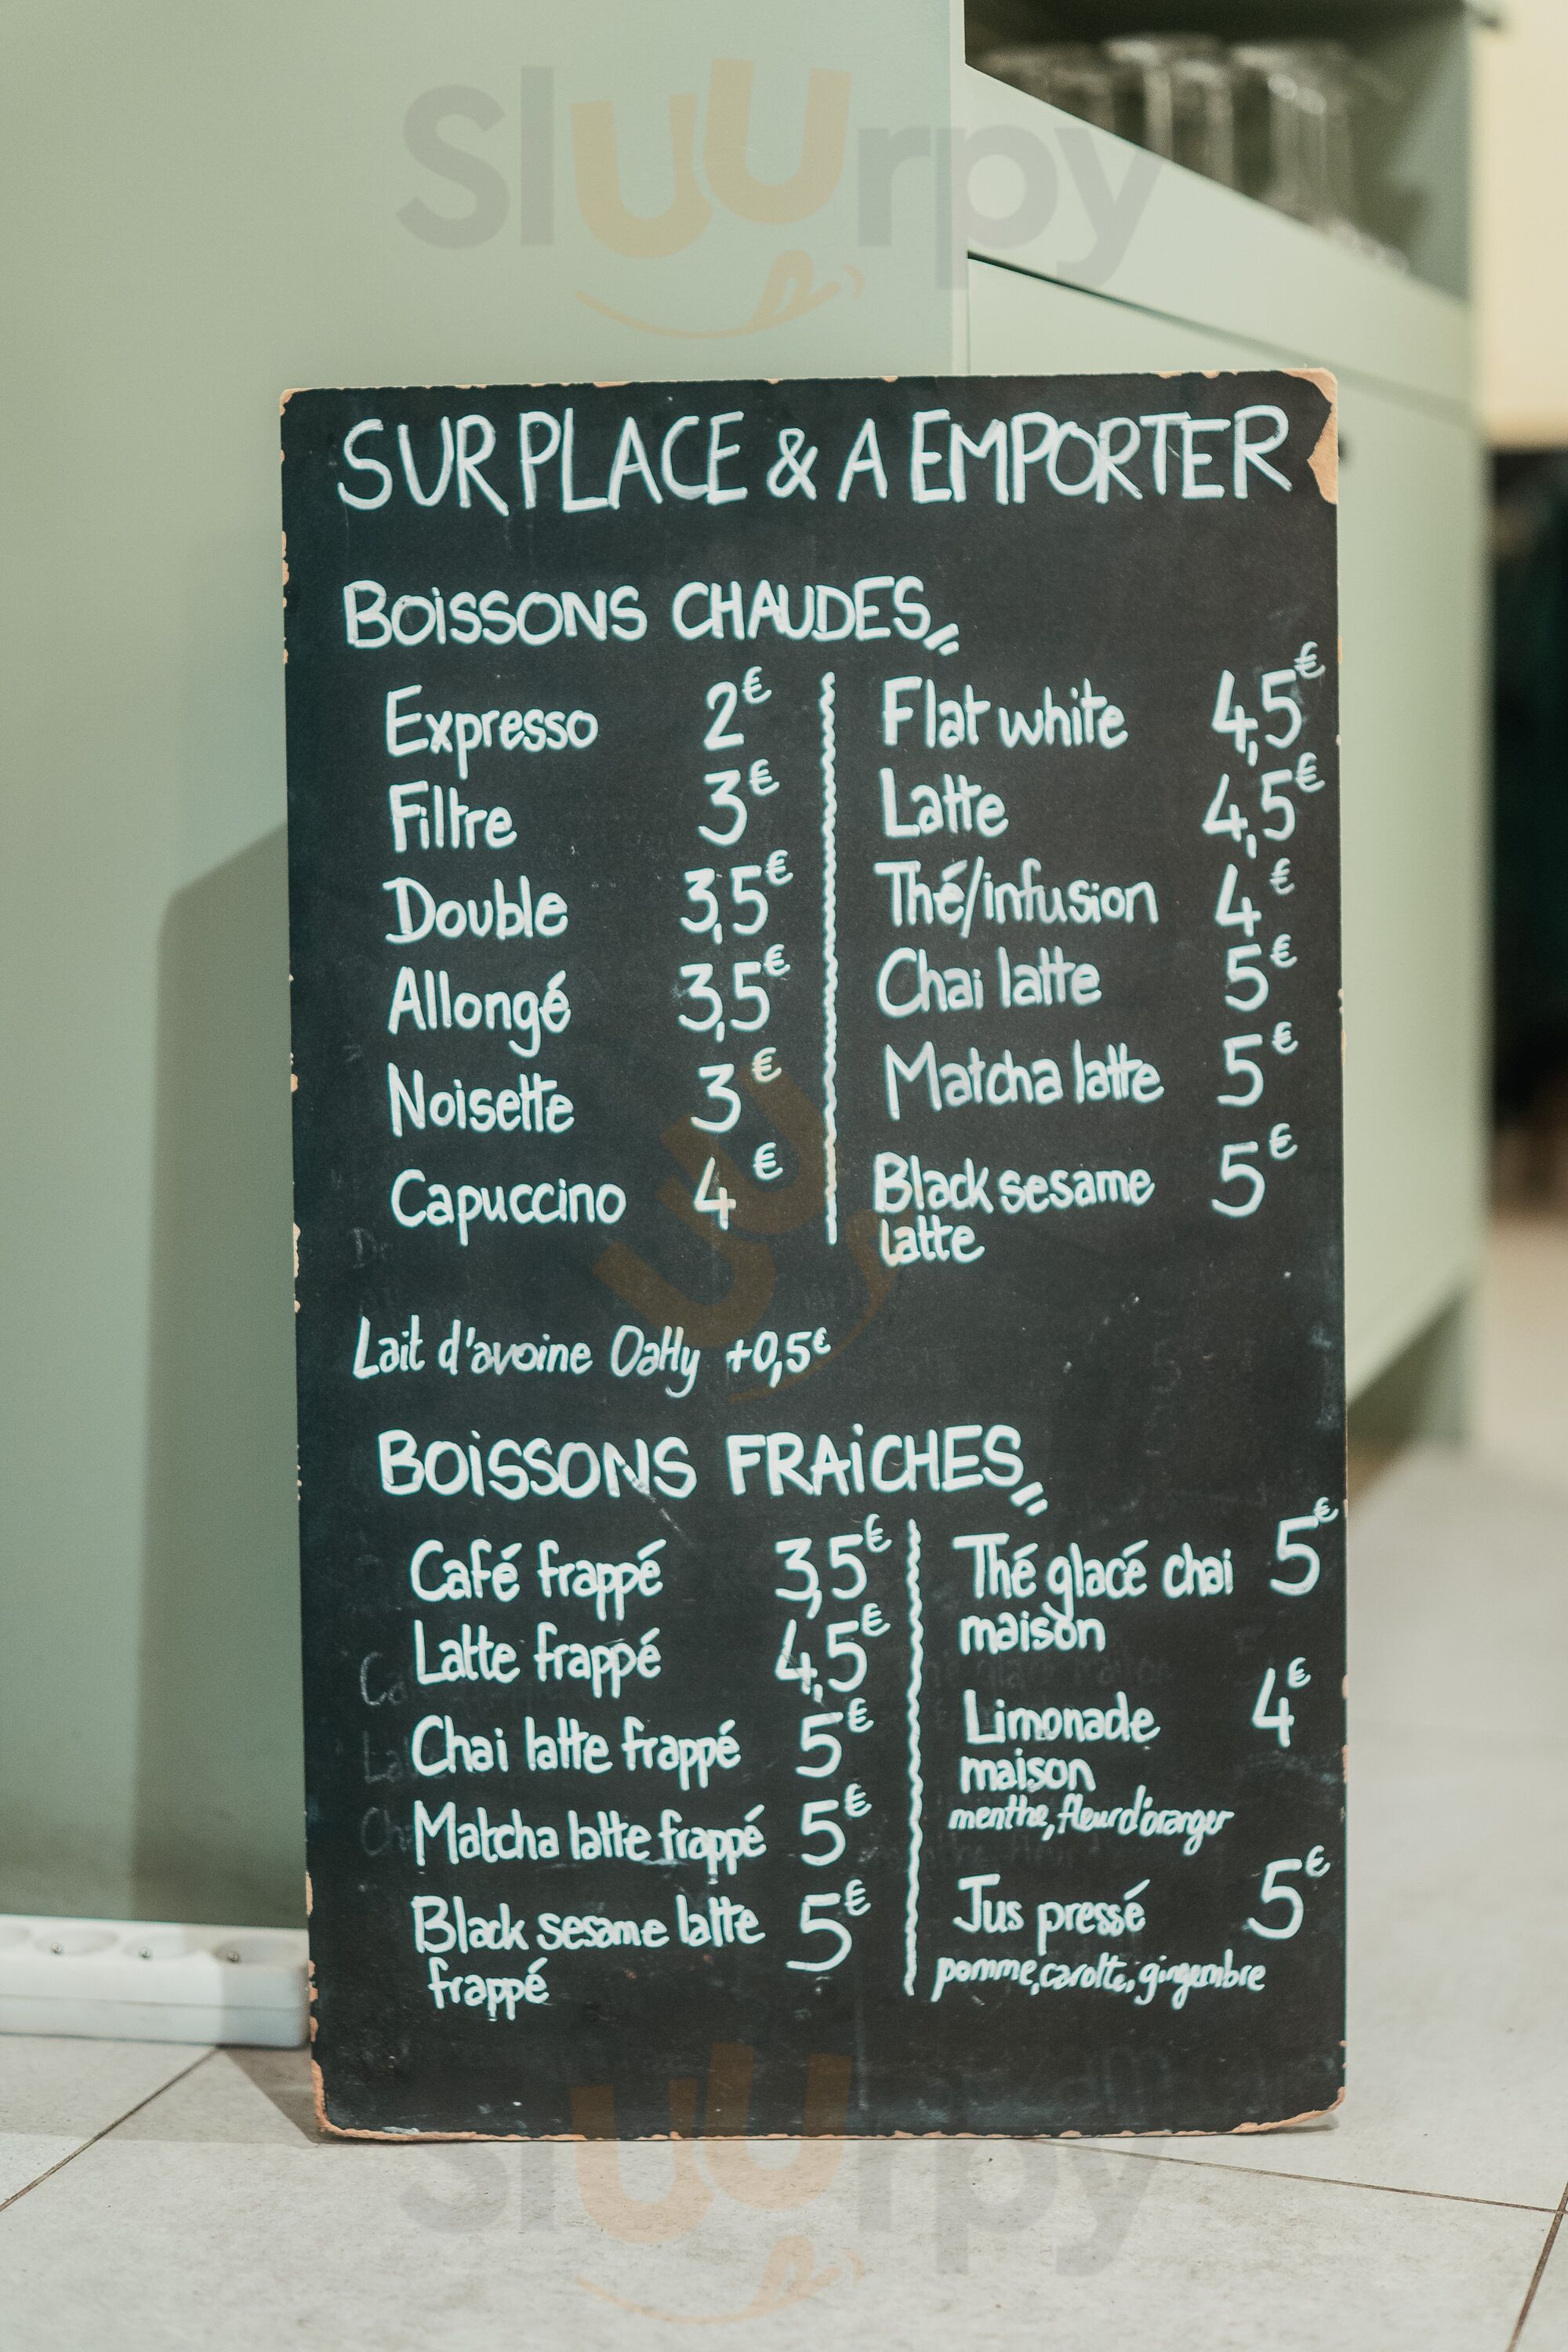 Sluurpy
SUR PLACE & A EMPORTER
BOiSSONS CHAUDES
Expresso 2€
Filtre 3€
Double 3,5€
Allongé 3,5€
Noisette 3€
Capuccino 4€
Flat white 4,5€
Latte 4,5€
Thé/infusion 4€
Chai latte 5€
Matcha latte 5€
Black sesame 5€
latte
Lait d'avoine Oatly +0,5€
BOiSSONS FRAiCHES
Café frappé 3,5€
Latte frappé 4,5€
Chai latte frappé 5€
Matcha latte frappé 5€
Black sesame latte 5€
frappé
Thé glacé chai 5€
maison
Limonade 4€
maison
menthe, fleur d'oranger
Jus pressé 5€
pomme, carotte, gingembre
Sluurpy